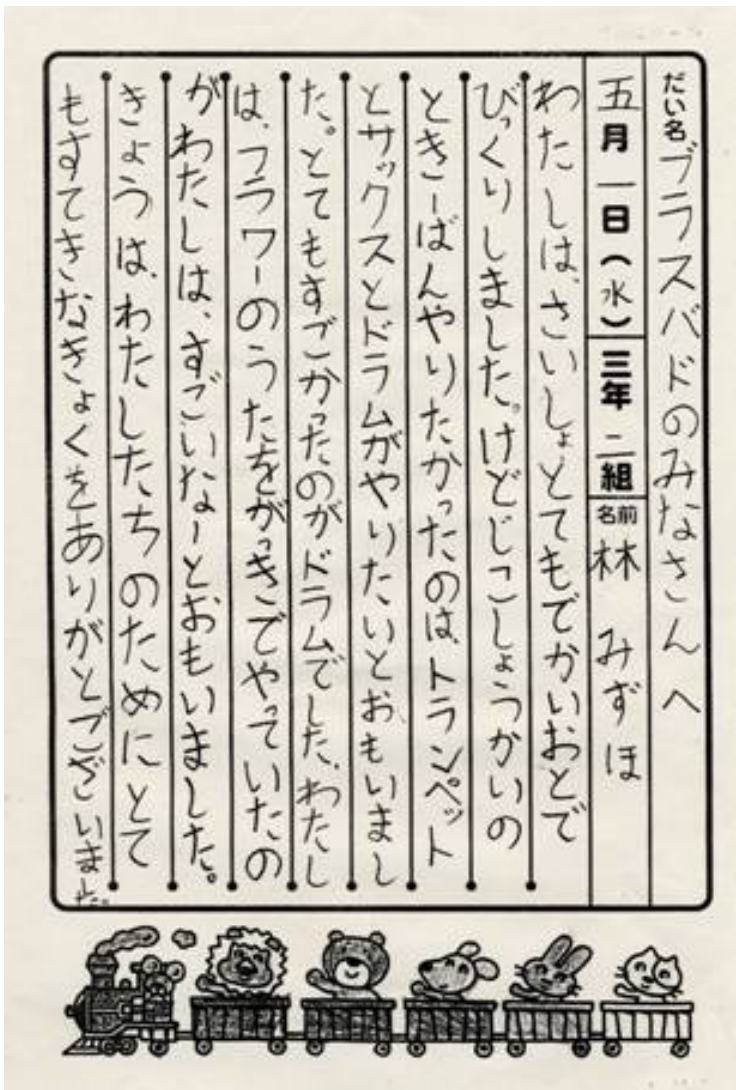 だい名 ブラスバドのみなさんへ
五月一日(水)三年二組 名前 林 みずほ
わたしは、さいしょとてもでかいおとで
びっくりしました。けどじこしょうかいの
ときーばんやりたかったのは、トランペット
とサックスとドラムがやりたいとおもいまし
た。とてもすごかったのがドラムでした。わたし
は、フラワーのうたをがっきでやっていたの
がわたしは、すごいなーとおもいました。
きょうは、わたしたちのためにとて
もすてきなきょくをありがとございました。